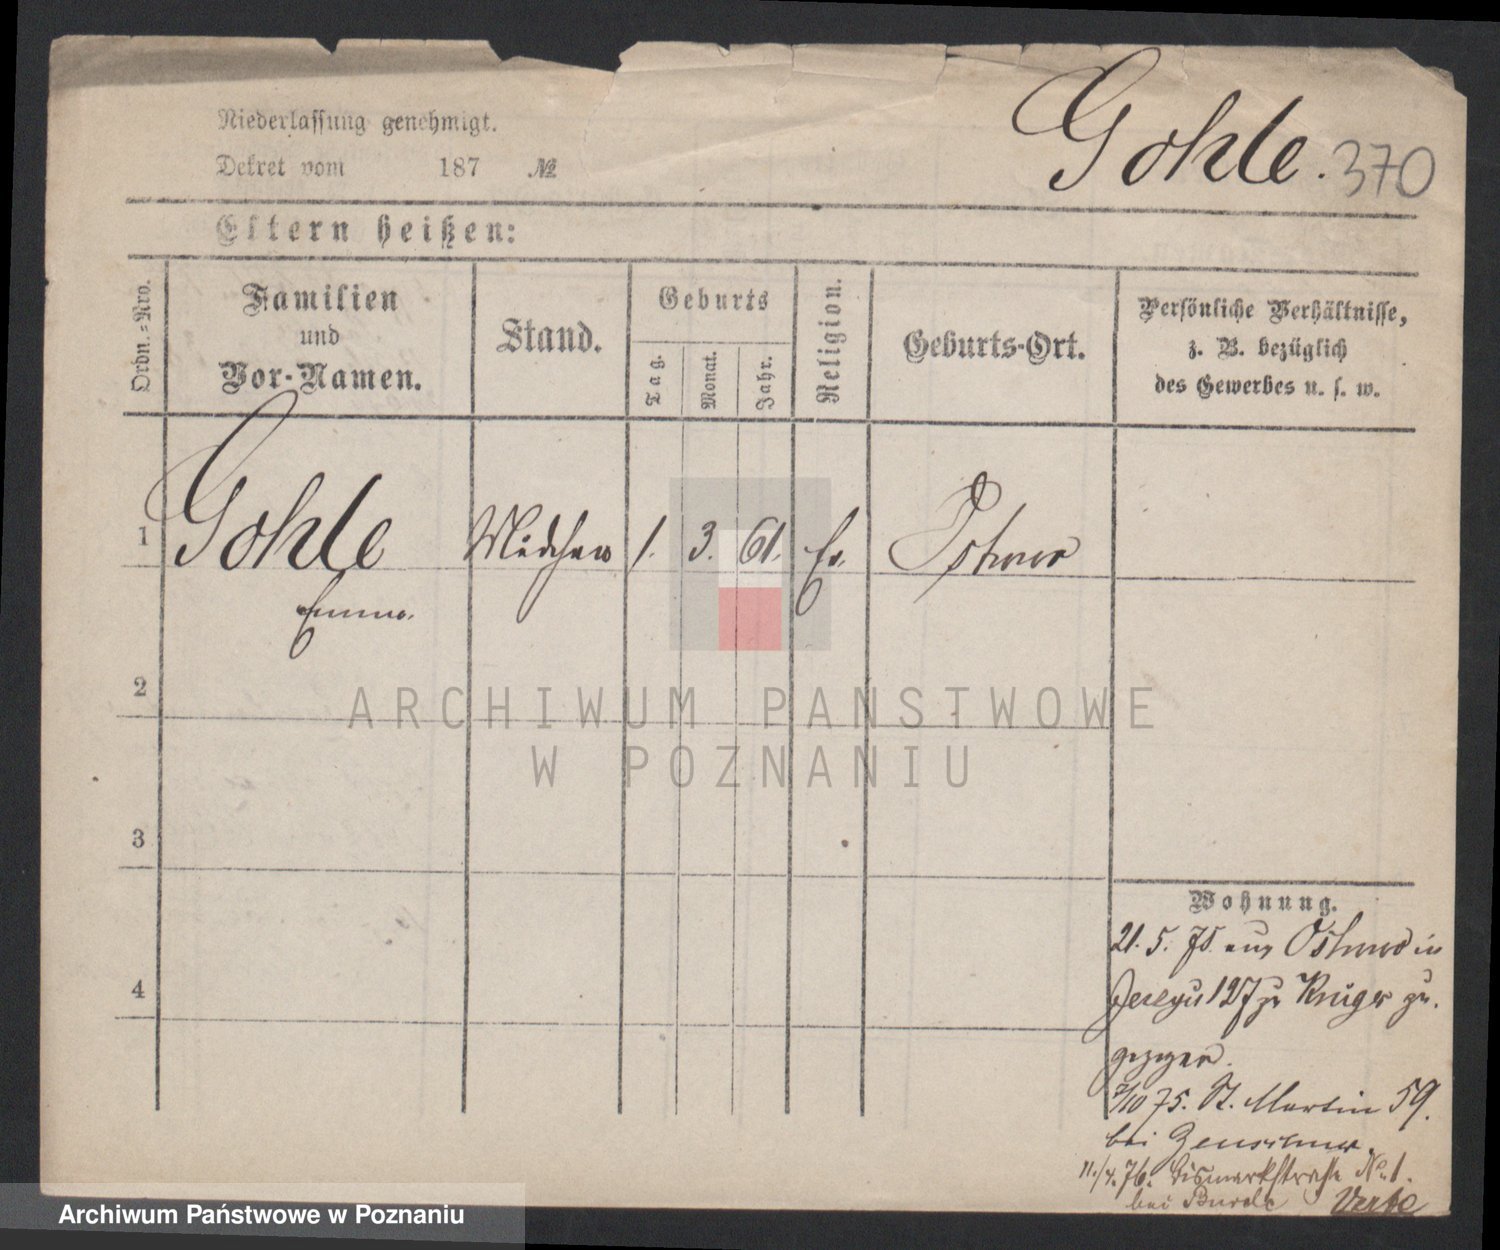 Niederlassung genehmigt.
Dekret vom 187 №
Gohle. 370
Eltern heißen:
Ordn.-Nro.
Familien
und
Vor-Namen.
Stand.
Geburts
Tag.
Monat.
Jahr.
Religion.
Geburts-Ort.
Persönliche Verhältnisse,
z. B. bezüglich
des Gewerbes u. s. w.
1 Gohle Mädchen 1. 3. 61. Ev. Ostrowo
Emma.
2
3
4
Wohnung.
21. 5. 75. aus Ostrowo in
127 zu Krüger zu-
gezogen.
7/10 75. St. Martin 59.
bei
11./4. 76. Bismarkstraße No. 1.
bei
Verte
ARCHIWUM PAŃSTWOWE
W POZNANIU
Archiwum Państwowe w Poznaniu